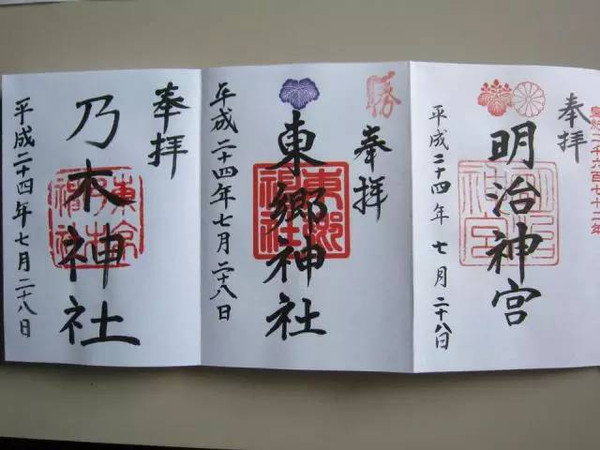 皇紀二千六百七十二年
奉拝
明治神宮
明治神宮
平成二十四年七月二十八日
勝
奉拝
東郷神社
東郷神社
平成二十四年七月二十八日
奉拝
乃木神社
平成二十四年七月二十八日